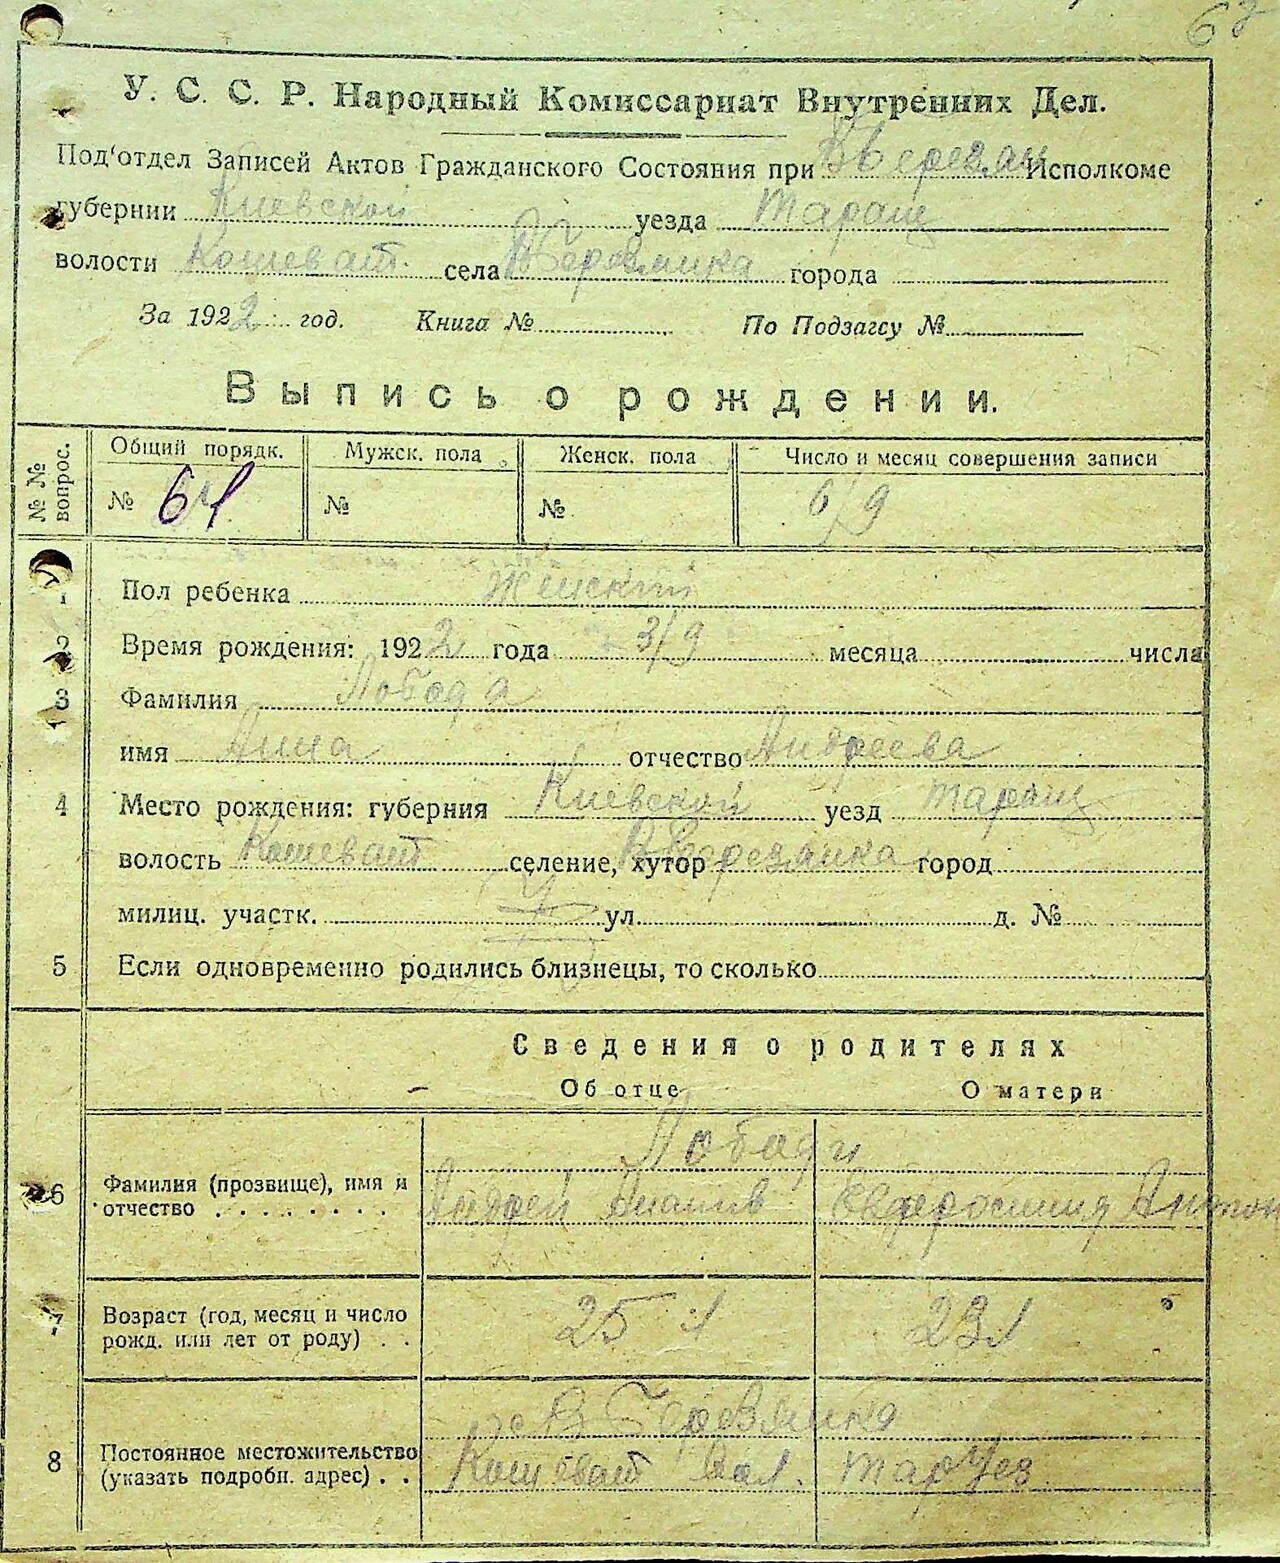 67
У. С. С. Р. Народный Комиссариат Внутренних Дел.
Под'отдел Записей Актов Гражданского Состояния при В Березан Исполкоме
губернии Киевской уезда Таращ
волости Кошеват. села В Березянка города
За 1922 год. Книга № По Подзагсу №
Выпись о рождении.
№№ вопрос. Общий порядк. Мужск. пола Женск. пола Число и месяц совершения записи
№ 64 № № 6/9
1 Пол ребенка Женский
2 Время рождения: 1922 года 3/9 месяца числа
3 Фамилия Лобода
имя Анна отчество Андреева
4 Место рождения: губерния Киевской уезд Таращ
волость Кошеват селение, хутор В Березянка город
милиц. участк. ул. д. №
5 Если одновременно родились близнецы, то сколько
Сведения о родителях
Об отце О матери
Лободы
6 Фамилия (прозвище), имя и
отчество Андрей Евфросиния Антон
7 Возраст (год, месяц и число
рожд. или лет от роду) 25 л 23 л
с В Березянка
8 Постоянное местожительство
(указать подробн. адрес) Кошеват вол. Тар Уез